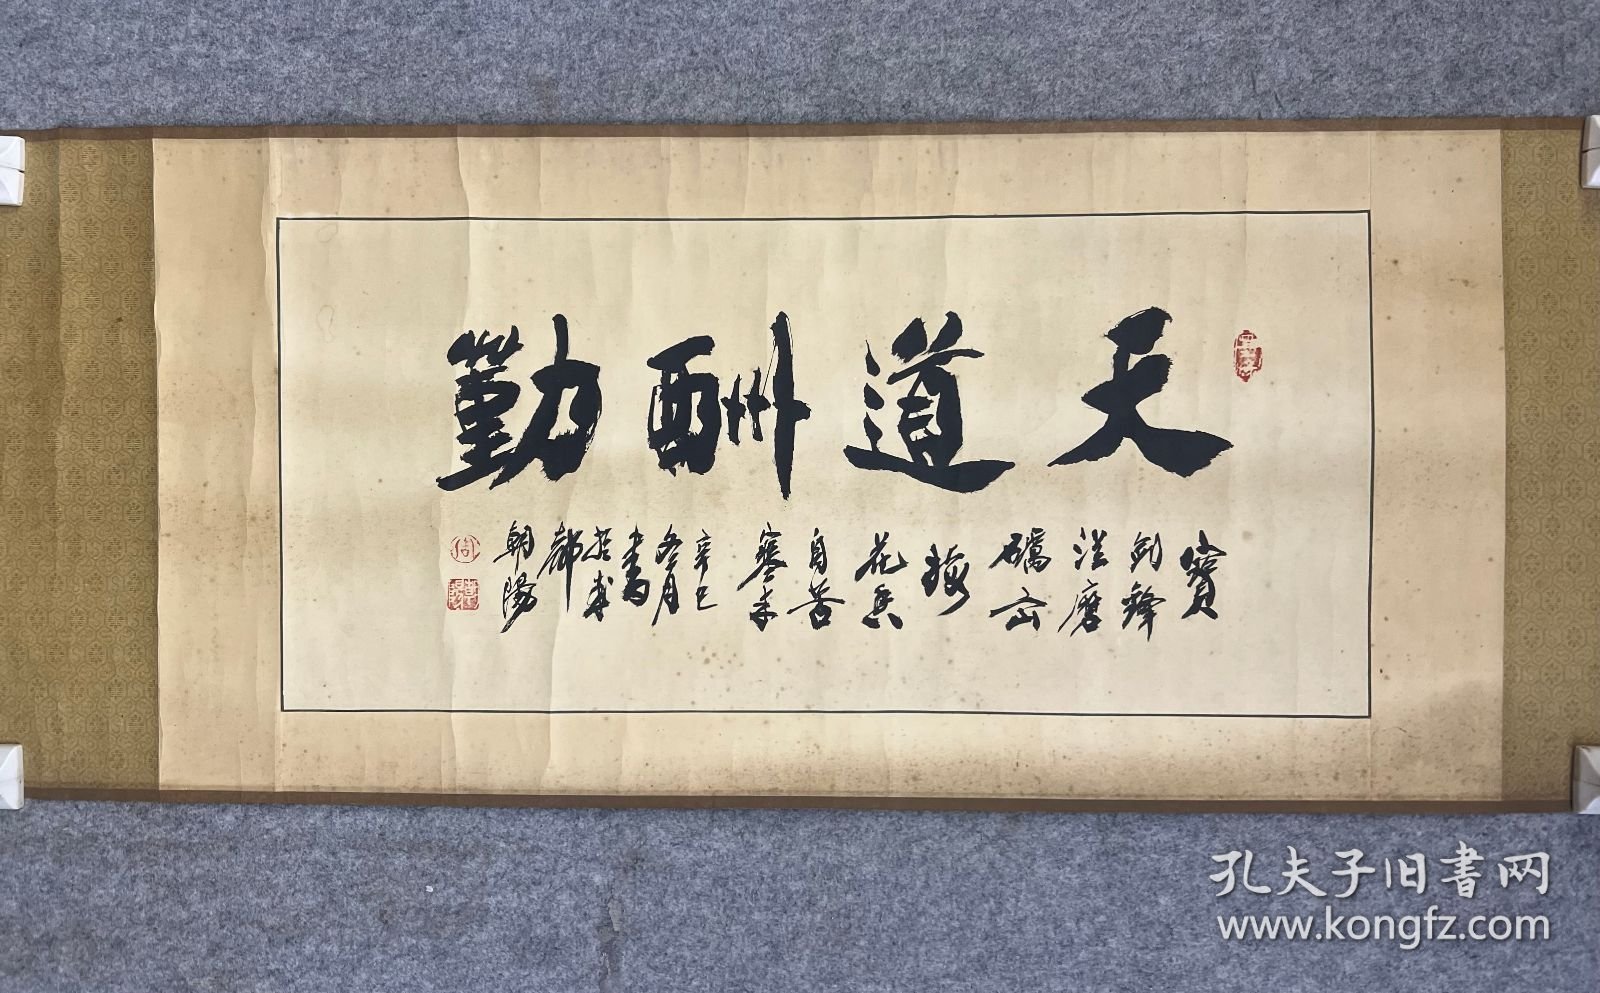 天道酬勤
寶
劍鋒
從磨
礪出
梅
花香
自苦
寒来
辛巳
冬月
書
於成
都
朝陽
孔夫子旧書网
www.kongfz.com